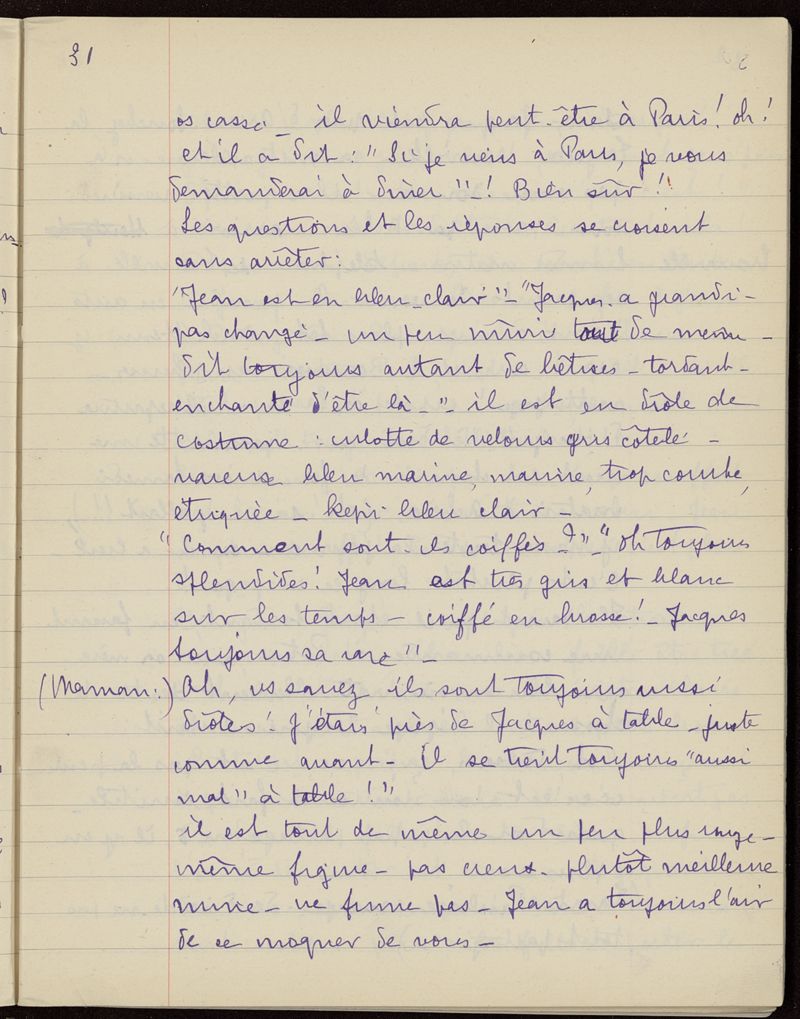 31
os cassé _ il viendra peut-être à Paris ! oh !
et il a dit : " Si je viens à Paris, je vous
demanderai à dîner " _ ! Bien sûr !!
Les questions et les réponses se croisent
sans arrêter :
"Jean est en bleu-clair" _ "Jacques a grandi -
pas changé - un peu mûri tout de même -
dit toujours autant de bêtises - tordant -
enchanté d'être là - " il est en drôle de
costume : culotte de velours gris côtelé -
vareuse bleu marine, marine, trop courte,
étriquée - képi bleu clair -
" Comment sont-ils coiffés ? " - " Oh toujours
splendides ! Jean est très gris et blanc
sur les temps - coiffé en brosse ! - Jacques
toujours sa raie " -
(Maman :) Oh, vs savez ils sont toujours aussi
drôles ! J'étais près de Jacques à table - juste
comme avant - Il se tient toujours "aussi
mal" à table ! "
il est tout de même un peu plus rouge -
même figure - pas creux - plutôt meilleure
mine - ne fume pas - Jean a toujours l'air
de se moquer de vous -